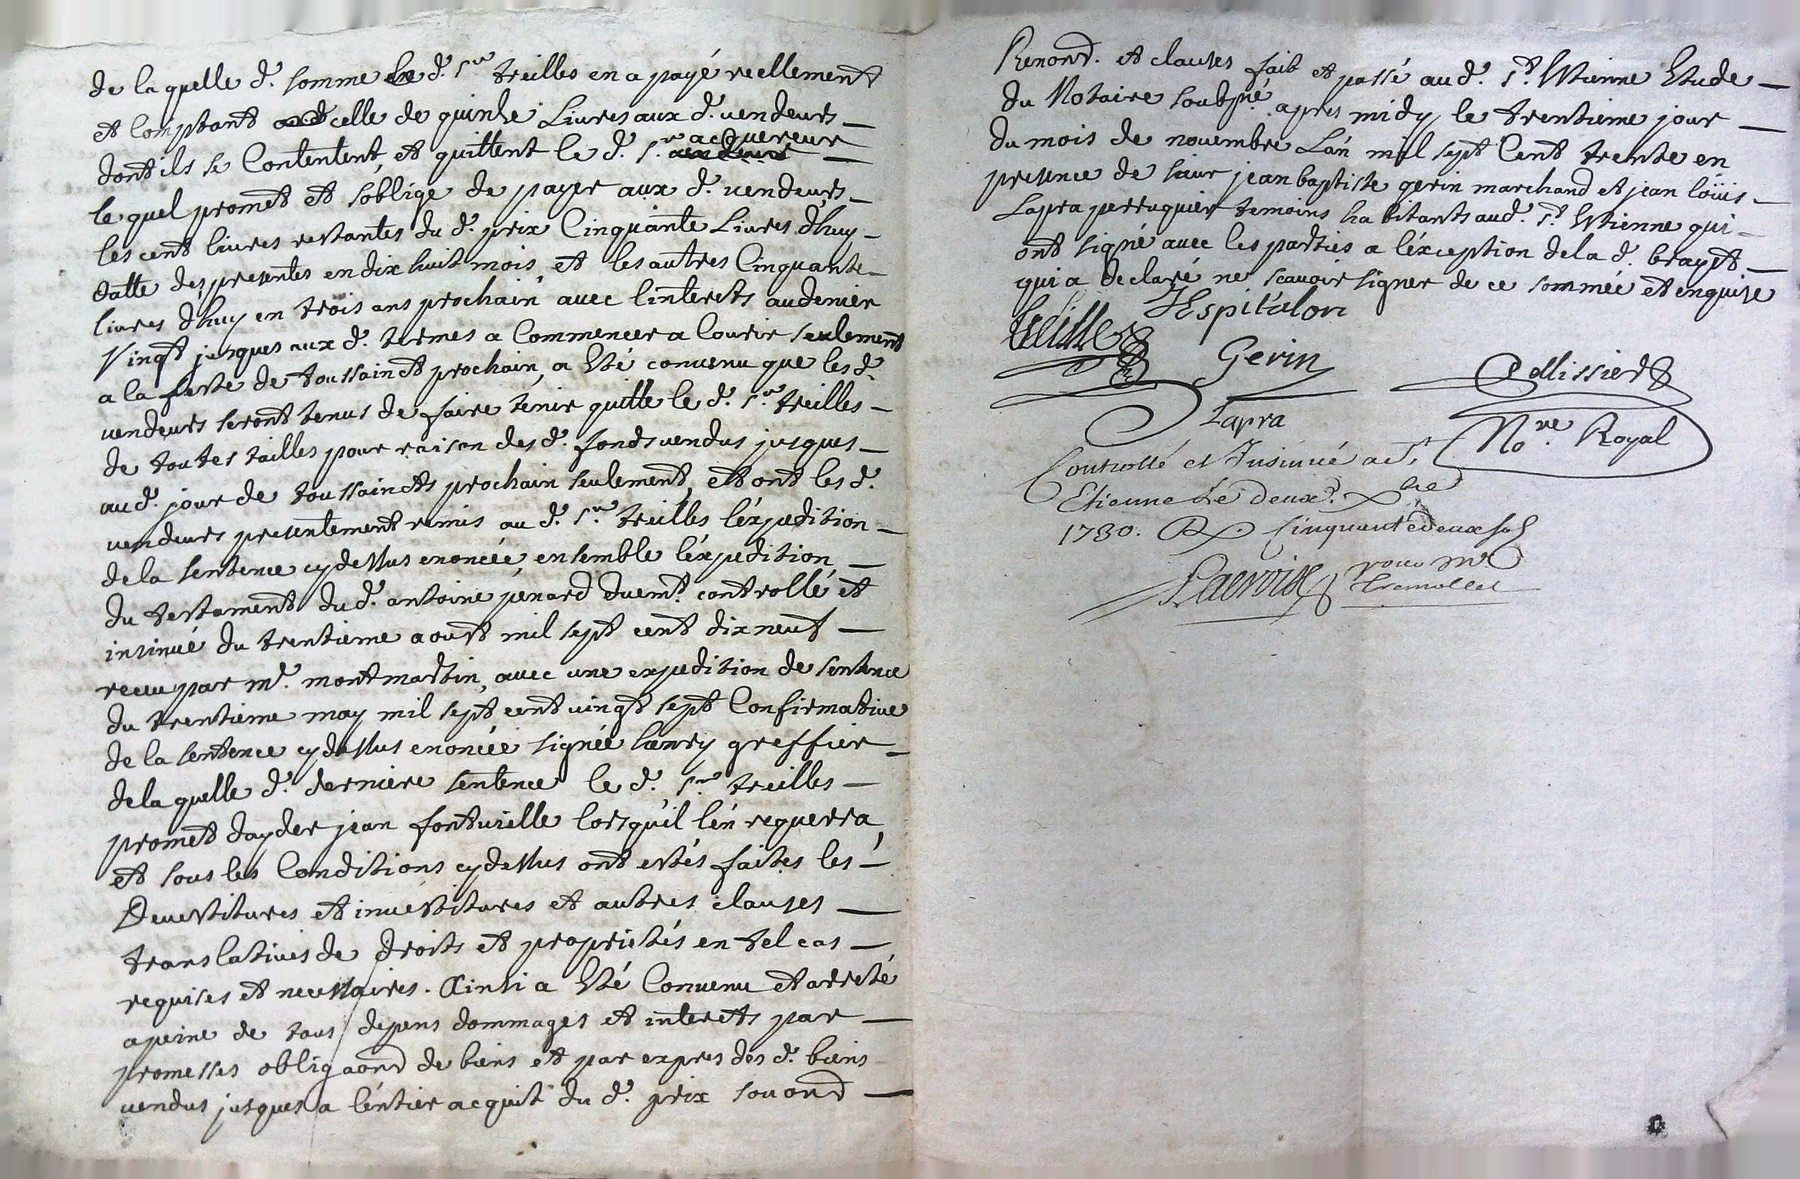 de laquelle d. somme le d. sr. treilles en a payé reellement
et comptant celle de quinze Livres aux d. vendeurs
dont ils se Contentent, et quittent le d. sr. acquereur
le quel promet et soblige de payer aux d. vendeurs
les cent livres restantes du d. prix Cinquante Livres dhuy
datte des presentes en dix huit mois, et les autres Cinquante
livres dhuy en trois ans prochain avec linterets au denier
Vingt jusques aux d. termes a Commencer a Courir seulement
a la feste de toussainct prochain, a Eté convenu que les d.
vendeurs seront tenus de faire tenir quitte le d. sr. treilles
de toutes tailles pour raison des d. fonds vendus jusques
au d. jour de toussaincts prochain seulement, et ont les d.
vendeurs presentement remis au d. sr. treilles l'expedition
de la sentence cy dessus enoncée, ensemble l'expedition
du testament du d. antoine penard duemt. controllé et
insinué du trentieme aoust mil sept cent dix neuf
receu par me. montmartin, avec une expedition de sentence
du trentieme may mil sept cent vingt sept Confirmative
de la sentence cy dessus enoncée signée greffier
de la quelle d. derniere sentence le d. sr. treilles
promet dayder jean fontuielle lorsqu'il l'en requerra,
et sous les Conditions cy dessus ont estés faites les
Devestitures et investitures et autres clauses
translatives de droits et proprietés en tel cas
requises et necessaires. Ainsi a Eté Convenu et arreté
a peine de tous depens dommages et interets par
promesses obligaond de biens et par expres des d. biens
vendus jusques a l'entier acquit du d. prix souond
Renond. et clauses fait et passé au d. St. Etienne Etude
du Notaire soubzné apres midy le trentieme jour
du mois de novembre L'an mil sept Cent trente en
presence de sieur jean baptiste gerin marchand et jean loüis
Lapra perruquier temoins habitants aud. St. Etienne qui
ont signé avec les parties a l'exception de la d. brayet
qui a declaré ne scavoir signer de ce sommée et enquise
treilles
Hespitalon
Gerin
Pellissier
Lapra
No.re Royal
Controllé et Insinué a St
Etienne Le deux. Xbre
1730. R cinquante deux sols
Lacroix pour Mr